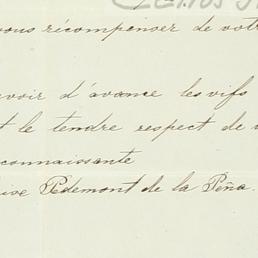 vous récompenser de votr
evoir d'avance les vifs
t le tendre respect de v
connaissante
ise Pedemont de la Peña.